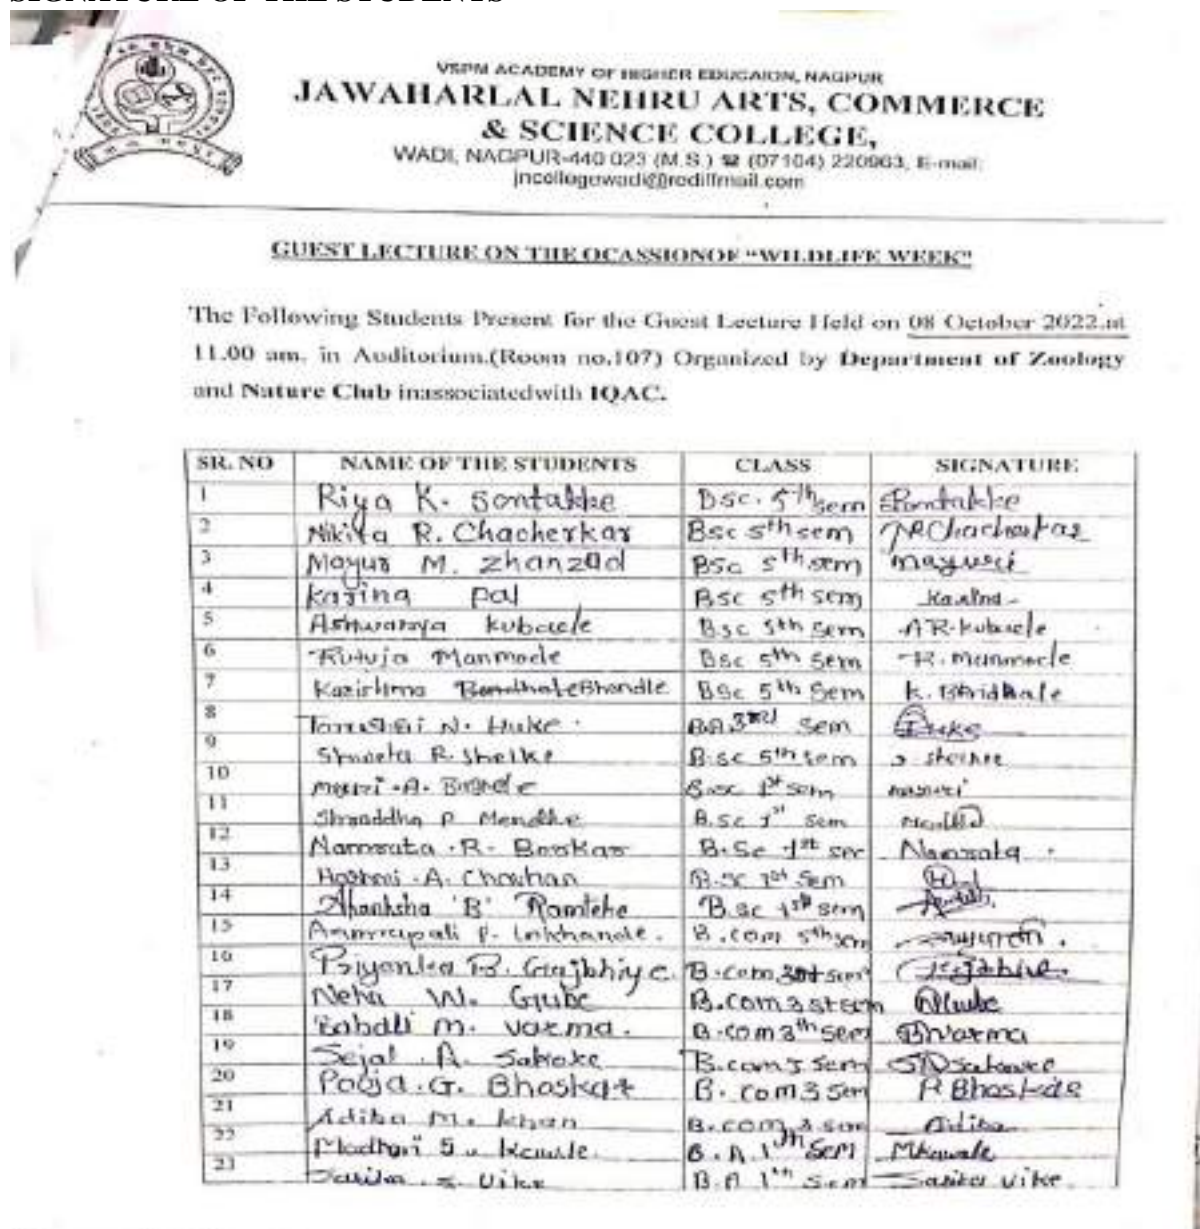 SIGNATURE OF THE STUDENTS
VSPM ACADEMY OF HIGHER EDUCAION, NAGPUR
JAWAHARLAL NEHRU ARTS, COMMERCE
& SCIENCE COLLEGE,
WADI, NAGPUR-440 023 (M.S.) ☎ (07104) 220963, E-mail:
jncollegewadi@rediffmail.com
GUEST LECTURE ON THE OCASSIONOF “WILDLIFE WEEK”
The Following Students Present for the Guest Lecture Held on 08 October 2022.at
11.00 am. in Auditorium.(Room no.107) Organized by Department of Zoology
and Nature Club inassociatedwith IQAC.
SR. NO NAME OF THE STUDENTS CLASS SIGNATURE
1 Riya K. Sontakke Bsc. 5th sem Sontakke
2 Nikita R. Chacherkar Bsc 5th sem NRChacherkar
3 Mayur M. Zhanzad BSc 5th sem mayuri
4 Karina pal Bsc 5th sem Karina
5 Ashwarya kubade Bsc 5th Sem AR.kubade
6 Rutuja Manmode Bsc 5th Sem R. manmode
7 BSc 5th Sem K.
8 N. Huke. BA 3rd Sem Huke
9 Shweta R. Shelke B.sc 5th sem
10 .A. B.sc 1st sem mayuri
11 Shraddha P Mendhe B.Sc 1st sem
12 Namrata .R. Borkar B.Sc 1st sem Namrata
13 .A. Chowhan B.sc 1st Sem
14 'B' Ramteke B.sc 1st sem
15 Ammrapali P. Lokhande. B.com 5th sem
16 Priyanka B. Gajbhiye. B.com sem Gajbhiye
17 Neha W. Gube B.com 3 st sem
18 M. varma. B.com 3th sem BVarma
19 Sejal .A. Sakoke B.com sem
20 Pooja .G. Bhaskar B.com 3 sem P Bhaskar
21 Adiba M. khan B.com 3 sem Adiba
22 Madhuri S. Kawale B.A. 1th Sem MKawale
23 Sarika S. Uike B.A 1th Sem Sarika Uike